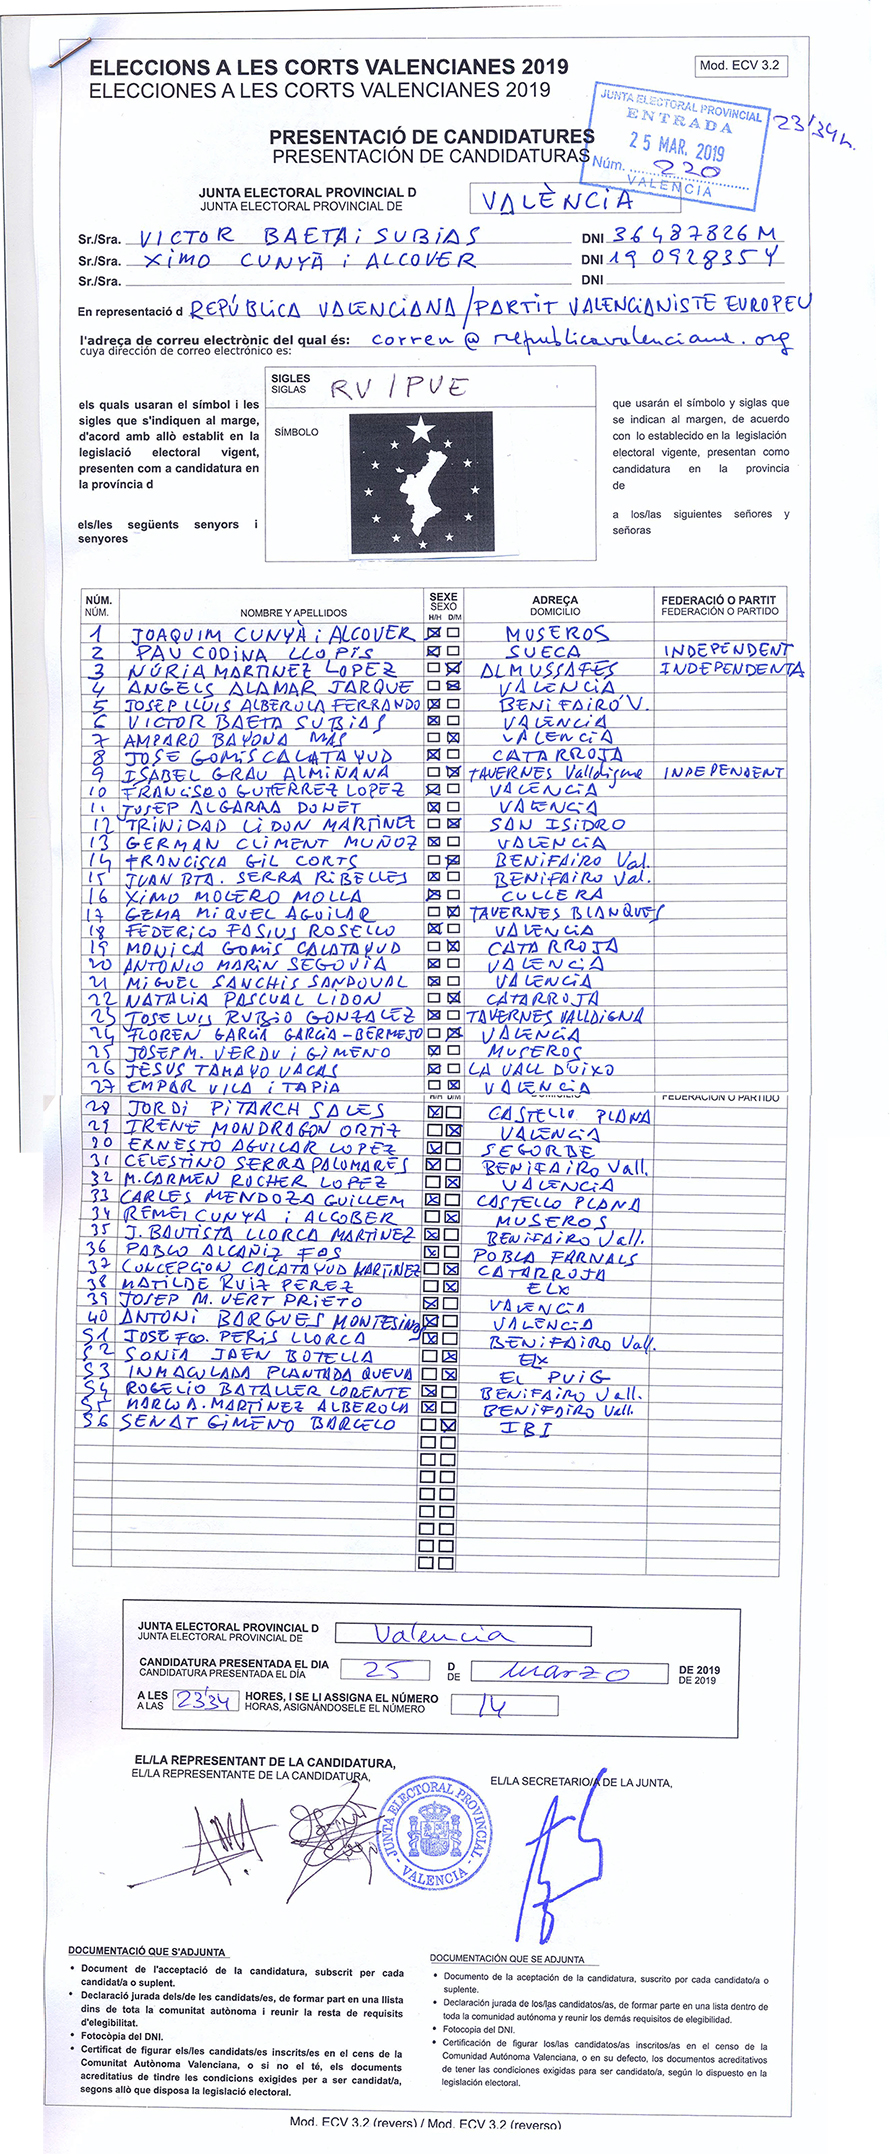 ELECCIONS A LES CORTS VALENCIANES 2019
ELECCIONES A LES CORTS VALENCIANES 2019
Mod. ECV 3.2
JUNTA ELECTORAL PROVINCIAL
ENTRADA
25 MAR. 2019
Núm. 220
VALENCIA
23'34h.
PRESENTACIÓ DE CANDIDATURES
PRESENTACIÓN DE CANDIDATURAS
JUNTA ELECTORAL PROVINCIAL D
JUNTA ELECTORAL PROVINCIAL DE
VALÈNCIA
Sr./Sra. VICTOR BAETA i SUBIAS DNI 36487826M
Sr./Sra. XIMO CUNYÀ i ALCOVER DNI 19092835Y
Sr./Sra. DNI
En representació d REPÚBLICA VALENCIANA/PARTIT VALENCIANISTE EUROPEU
l'adreça de correu electrònic del qual és: correu@republicavalenciana.org
cuya dirección de correo electrónico es:
SIGLES
SIGLAS
RV/PVE
SÍMBOLO
els quals usaran el símbol i les
sigles que s'indiquen al marge,
d'acord amb allò establit en la
legislació electoral vigent,
presenten com a candidatura en
la província d
els/les següents senyors i
senyores
que usarán el símbolo y siglas que
se indican al margen, de acuerdo
con lo establecido en la legislación
electoral vigente, presentan como
candidatura en la provincia
de
a los/las siguientes señores y
señoras
NÚM. SEXE ADREÇA FEDERACIÓ O PARTIT
NÚM. NOMBRE Y APELLIDOS SEXO DOMICILIO FEDERACIÓN O PARTIDO
H/H D/M
1 JOAQUIM CUNYÀ i ALCOVER MUSEROS
2 PAU CODINA LLOPIS SUECA INDEPENDENT
3 NÚRIA MARTINEZ LOPEZ ALMUSSAFES INDEPENDENTA
4 ANGELS ALAMAR JARQUE VALENCIA
5 JOSEP LLUIS ALBEROLA FERRANDO BENIFAIRÓ V.
6 VICTOR BAETA SUBIAS VALENCIA
7 AMPARO BAYONA MAS VALENCIA
8 JOSE GOMIS CALATAYUD CATARROJA
9 ISABEL GRAU ALMIÑANA TAVERNES Valldigna INDEPENDENT
10 FRANCISCO GUTERREZ LOPEZ VALENCIA
11 JOSEP ALGARRA DONET VALENCIA
12 TRINIDAD LIDON MARTINEZ SAN ISIDRO
13 GERMAN CLIMENT MUÑOZ VALENCIA
14 FRANCISCA GIL CORTS BENIFAIRO Val.
15 JUAN BTA. SERRA RIBELLES BENIFAIRO Val.
16 XIMO MOLERO MOLLA CULLERA
17 GEMA MIQUEL AGUILAR TAVERNES BLANQUES
18 FEDERICO FASIUS ROSELLO VALENCIA
19 MONICA GOMIS CALATAYUD CATARROJA
20 ANTONIO MARIN SEGOVIA VALENCIA
21 MIGUEL SANCHIS SANDOVAL VALENCIA
22 NATALIA PASCUAL LIDON CATARROJA
23 JOSE LUIS RUBIO GONZALEZ TAVERNES VALLDIGNA
24 FLOREN GARCIA GARCIA-BERMEJO VALENCIA
25 JOSEP M. VERDU i GIMENO MUSEROS
26 JESUS TAMAYO VACAS LA VALL D'UIXO
27 EMPAR VILA i TAPIA VALENCIA
H/H D/M DOMICILIO FEDERACIÓN O PARTIDO
28 JORDI PITARCH SALES CASTELLO PLANA
29 IRENE MONDRAGON ORTIZ VALENCIA
30 ERNESTO AGUILAR LOPEZ SEGORBE
31 CELESTINO SERRA PALOMARES BENIFAIRO Vall.
32 M. CARMEN ROCHER LOPEZ VALENCIA
33 CARLES MENDOZA GUILLEM CASTELLO PLANA
34 REMEI CUNYA i ALCOBER MUSEROS
35 J. BAUTISTA LLORCA MARTINEZ BENIFAIRO Vall.
36 PABLO ALCAÑIZ FOS POBLA FARNALS
37 CONCEPCION CALATAYUD MARTINEZ CATARROJA
38 MATILDE RUIZ PEREZ ELX
39 JOSEP M. VERT PRIETO VALENCIA
40 ANTONI BARGUES MONTESINOS VALENCIA
S1 JOSE Fco. PERIS LLORCA BENIFAIRO Vall.
S2 SONIA JAEN BOTELLA Elx
S3 INMACULADA PLANTADA QUEVA EL PUIG
S4 ROGELIO BATALLER LORENTE BENIFAIRO Vall.
S5 MARCO A. MARTINEZ ALBEROLA BENIFAIRO Vall.
S6 SENAT GIMENO BARCELO IBI
JUNTA ELECTORAL PROVINCIAL D
JUNTA ELECTORAL PROVINCIAL DE
Valencia
CANDIDATURA PRESENTADA EL DIA 25 D marzo DE 2019
CANDIDATURA PRESENTADA EL DÍA DE DE 2019
A LES 23'34 HORES, I SE LI ASSIGNA EL NÚMERO 14
A LAS HORAS, ASIGNÁNDOSELE EL NÚMERO
EL/LA REPRESENTANT DE LA CANDIDATURA,
EL/LA REPRESENTANTE DE LA CANDIDATURA,
EL/LA SECRETARIO/A DE LA JUNTA,
JUNTA ELECTORAL PROVINCIAL
VALENCIA
DOCUMENTACIÓ QUE S'ADJUNTA
• Document de l'acceptació de la candidatura, subscrit per cada
candidat/a o suplent.
• Declaració jurada dels/de les candidats/es, de formar part en una llista
dins de tota la comunitat autònoma i reunir la resta de requisits
d'elegibilitat.
• Fotocòpia del DNI.
• Certificat de figurar els/les candidats/es inscrits/es en el cens de la
Comunitat Autònoma Valenciana, o si no el té, els documents
acreditatius de tindre les condicions exigides per a ser candidat/a,
segons allò que disposa la legislació electoral.
DOCUMENTACIÓN QUE SE ADJUNTA
• Documento de la aceptación de la candidatura, suscrito por cada candidato/a o
suplente.
• Declaración jurada de los/las candidatos/as, de formar parte en una lista dentro de
toda la comunidad autónoma y reunir los demás requisitos de elegibilidad.
• Fotocopia del DNI.
• Certificación de figurar los/las candidatos/as inscritos/as en el censo de la
Comunidad Autónoma Valenciana, o en su defecto, los documentos acreditativos
de tener las condiciones exigidas para ser candidato/a, según lo dispuesto en la
legislación electoral.
Mod. ECV 3.2 (revers) / Mod. ECV 3.2 (reverso)